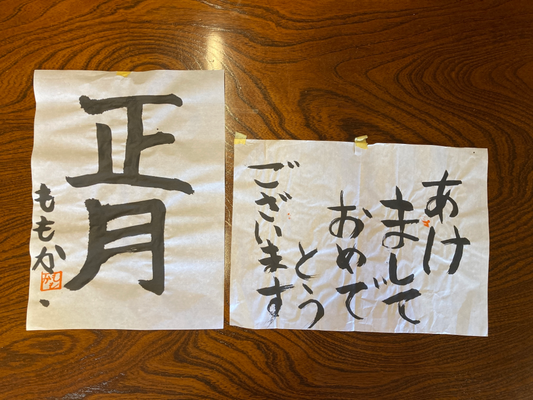 正月
ももか
あけ
まして
おめで
とう
ございます